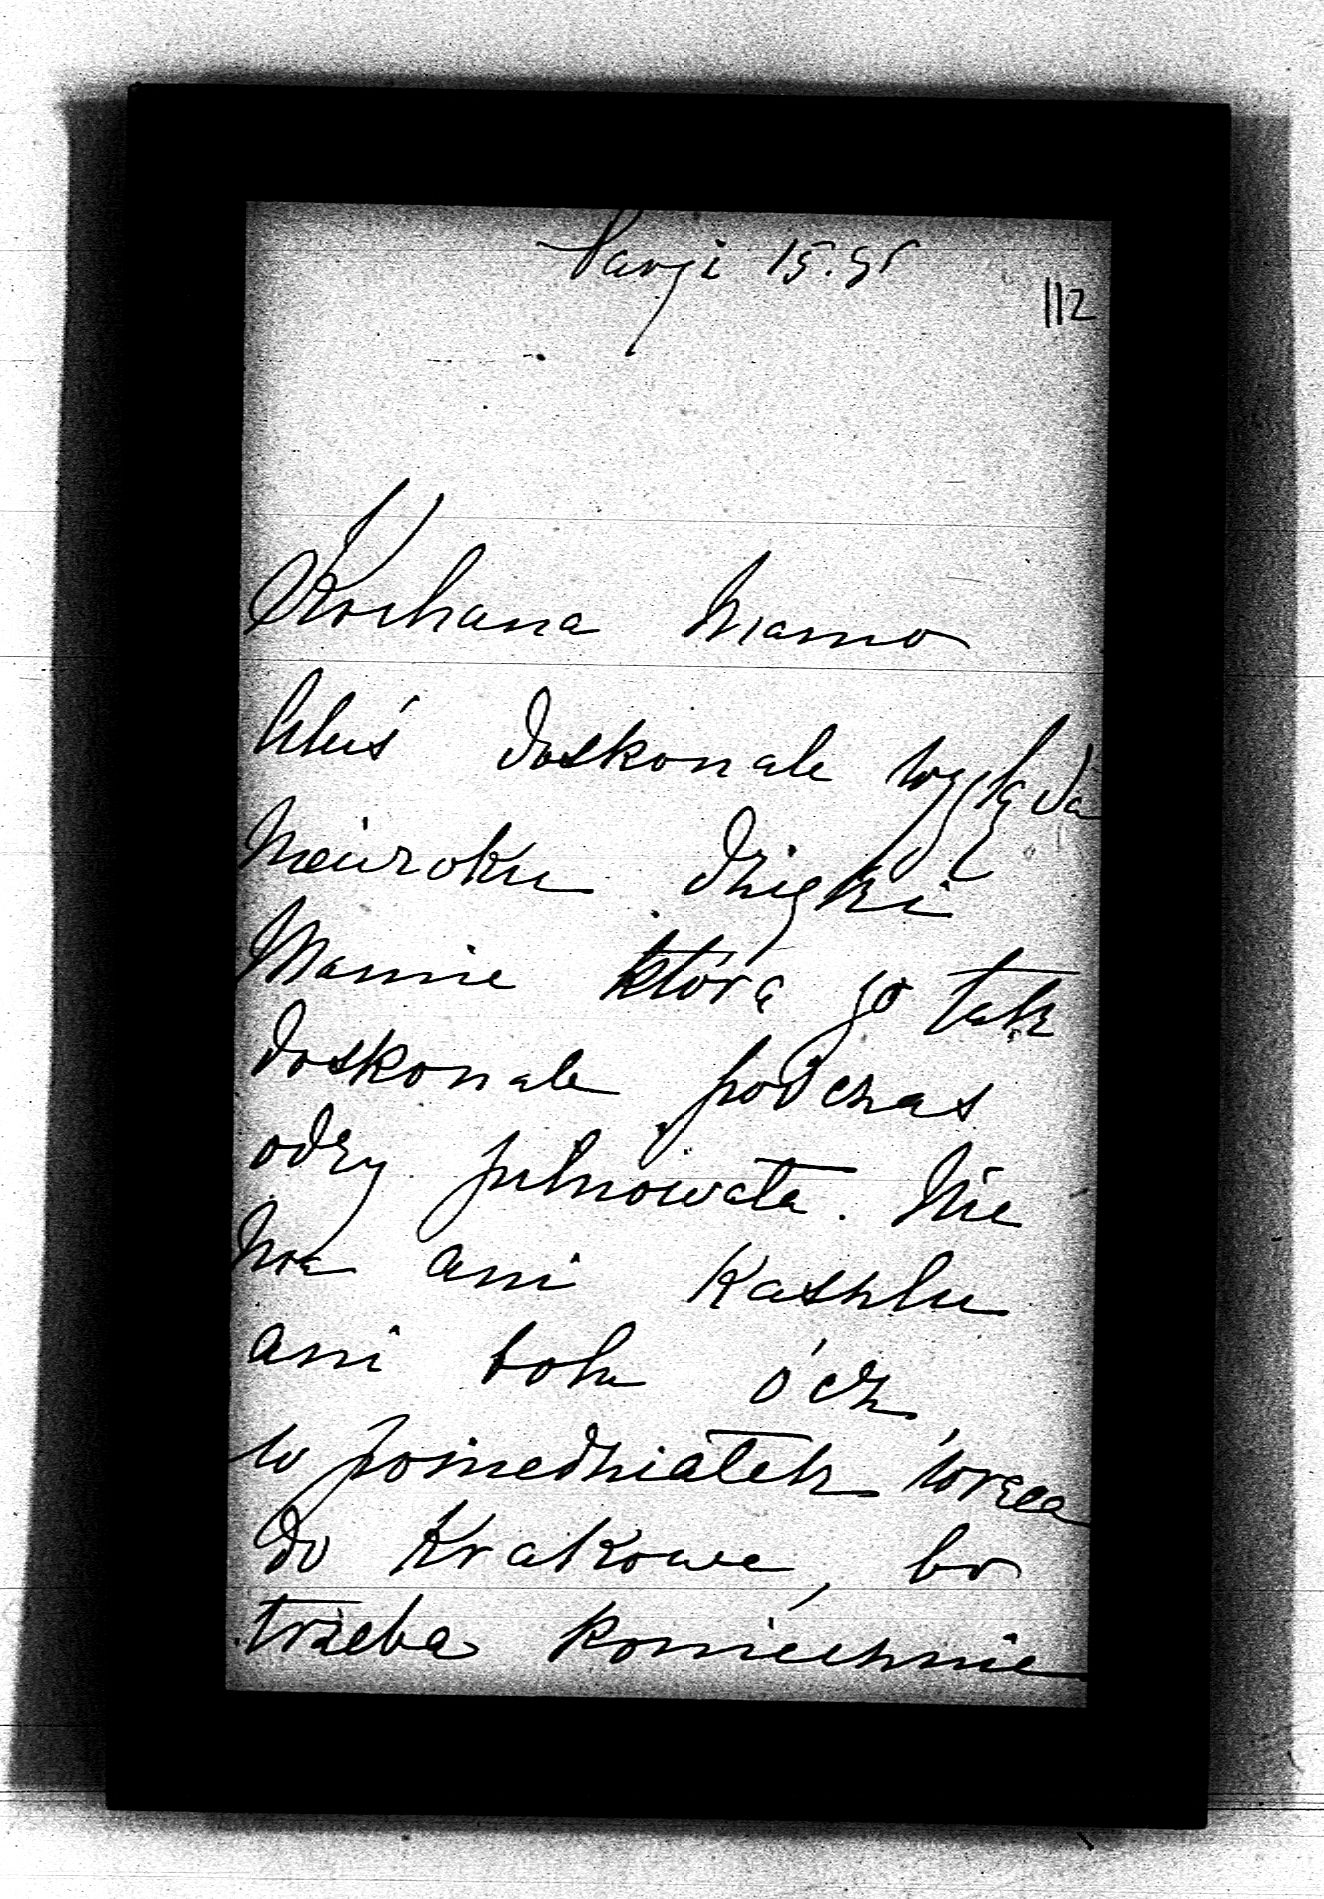 15.
112
Kochana Mamo
doskonale wygląda
nieuroku dzięki
Mamie która go tak
doskonale podczas
odry pilnowała. Nie
ma ani Kaszlu
ani bolu ócz,
w poniedziałek wraca
do Krakowa, bo
trzeba koniecznie